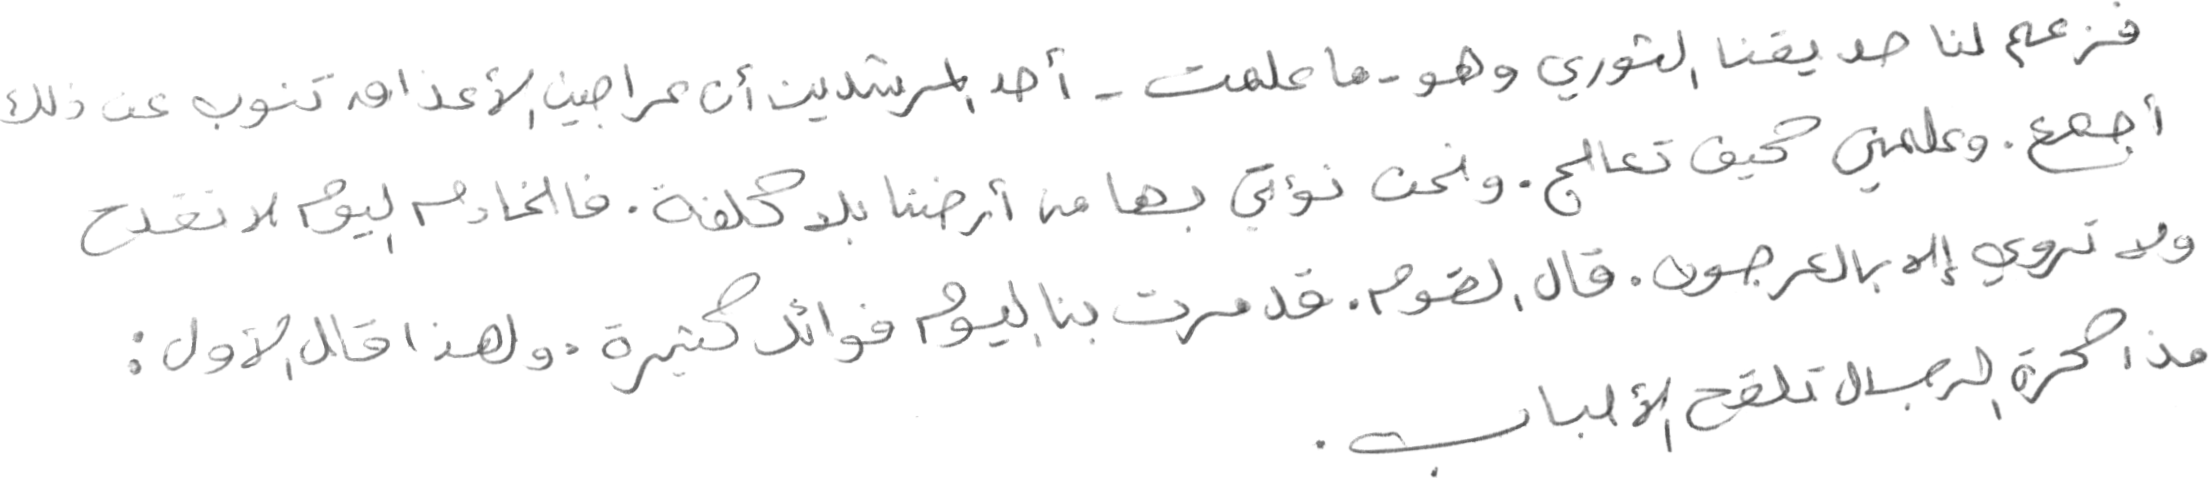 فزعم لنا صديقنا الثوري وهو - ما علمت - أحد المرشدين أن عراجين الأعذاق تنوب عن ذلك
أجمع. وعلمني كيف تعالج. ونحن نؤتى بها من أرضنا بلا كلفة. فالخادم اليوم لا تقدح
ولا توري إلا بالعرجون. قال القوم. قد مرت بنا اليوم فوائد كثيرة. ولهذا قال الأول:
مذاكرة الرجال تلقح الألباب.